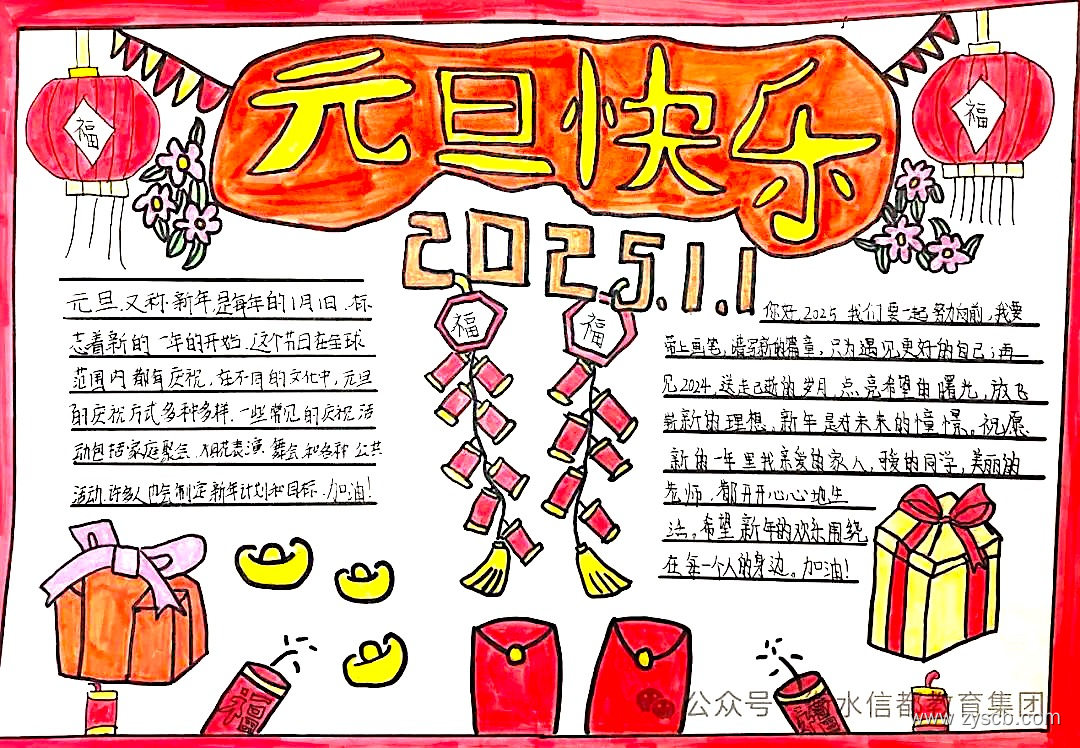 元旦快乐
福
福
2025.1.1
福
福
元旦,又称新年,是每年的1月1日,标
志着新的一年的开始.这个节日在全球
范围内都有庆祝,在不同的文化中,元旦
的庆祝方式多种多样.一些常见的庆祝活
动包括家庭聚会,表演,舞会和各种公共
活动.许多人也会制定新年计划和目标.加油!
你好,2025 我们要一起努力向前,我要
带上画笔,谱写新的篇章,只为遇见更好的自己;再
见2024,送走已逝的岁月,点亮希望的曙光,放飞
崭新的理想,新年是对未来的憧憬。祝愿
新的一年里我亲爱的家人,的同学,美丽的
老师,都开开心心地生
活,希望新年的欢乐围绕
在每一个人的身边。加油!
福
公众号 水信都教育集团
www.zyscb.com